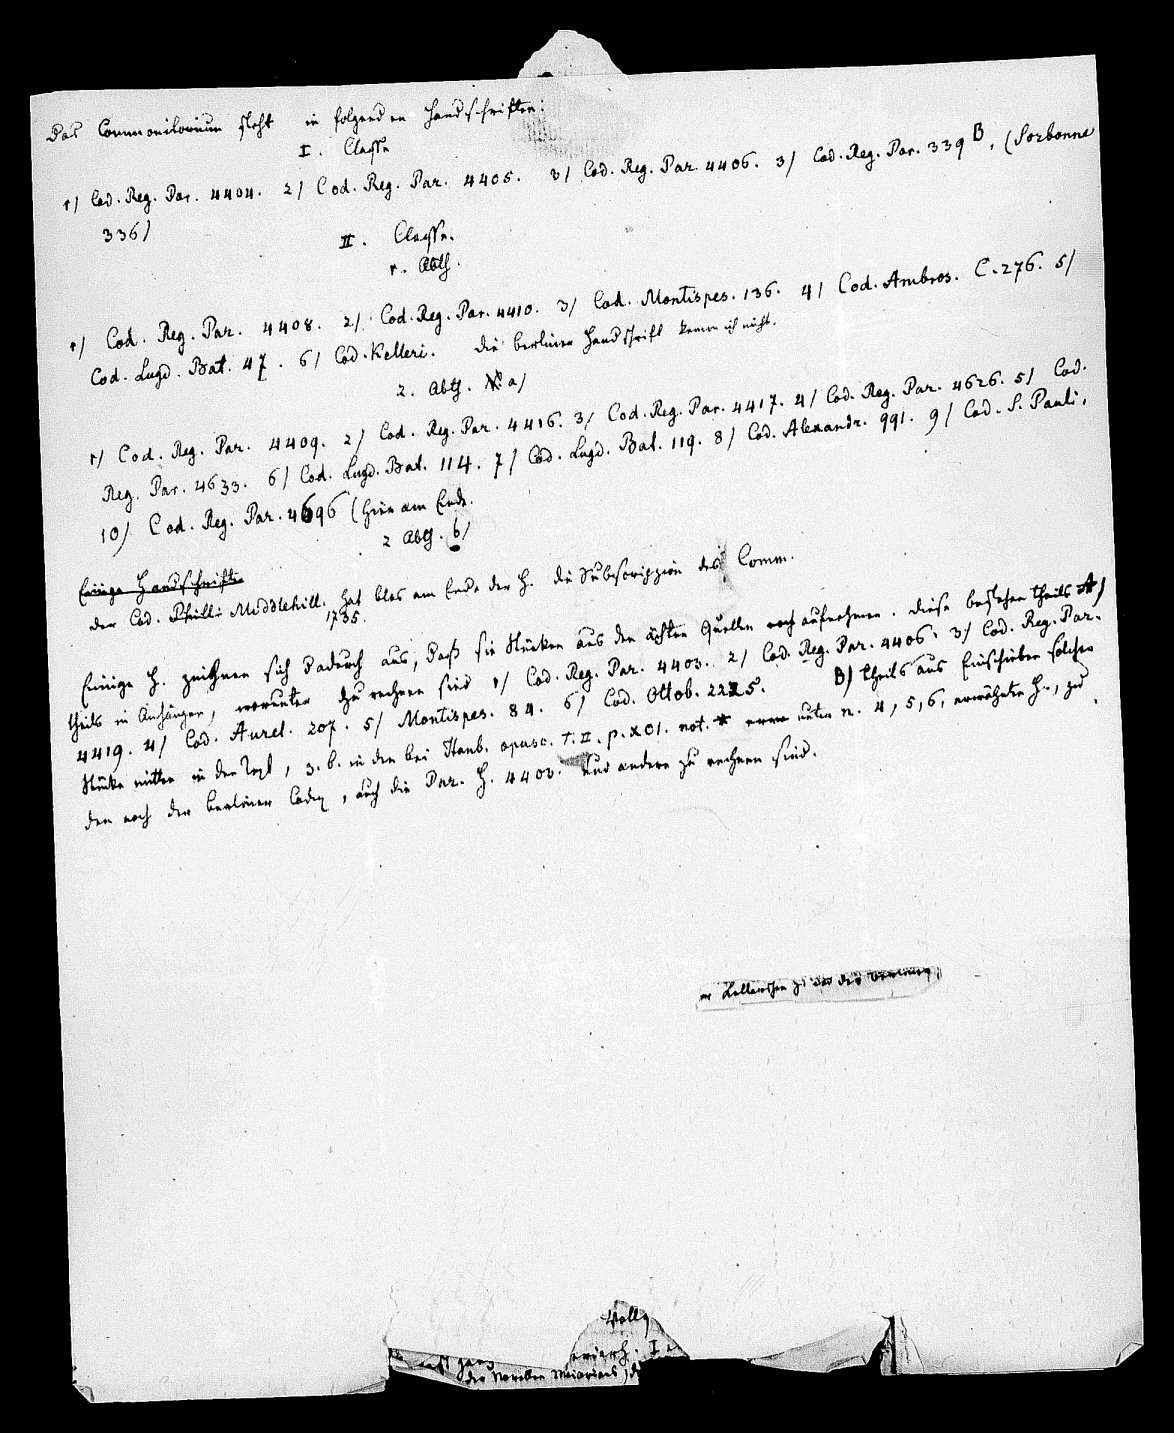 Das Commonitorium steht in folgenden Handschriften:
I. Classe
1) Cod. Reg. Par. 4404. 2) Cod. Reg. Par. 4405. 3) Cod. Reg. Par. 4406. 3) Cod. Reg. Par. 339 B. (Sorbonne
336)
II. Classe.
1. Abth.
1) Cod. Reg. Par. 4408. 2) Cod. Reg. Par. 4410. 3) Cod. Montispes. 136. 4) Cod. Ambros. C. 276. 5)
Cod. Lugd. Bat. 47. 6) Cod. Kelleri. die berliner Handschrift kenne ich nicht.
2. Abth. a)
1) Cod. Reg. Par. 4409. 2) Cod. Reg. Par. 4416. 3) Cod. Reg. Par. 4417. 4) Cod. Reg. Par. 4626. 5) Cod.
Reg. Par. 4633. 6) Cod. Lugd. Bat. 114. 7) Cod. Lugd. Bat. 119. 8) Cod. Alexandr. 991. 9) Cod. S. Pauli.
10) Cod. Reg. Par. 4696 (hier am Ende.
2 Abth. b)
Einige Handschriften
der Cod. Phill: Middlehill. hat blos am Ende der H. die Subscription des Comm.
1735.
Einige H. zeichnen sich dadurch aus, daß sie Stücken aus den ächten Quellen noch aufnehmen. diese bestehen theils A)
theils in Anhängen, worunter zu rechnen sind 1) Cod. Reg. Par. 4403. 2) Cod. Reg. Par. 4406. 3) Cod. Reg. Par.
4419. 4) Cod. Aurel. 207. 5) Montispes. 84. 6) Cod. Ottob. 2225. B) theils aus Einschieben solcher
Stücke mitten in den Text, z. b. in den bei Haub. opusc. T. II. p. XCI. not. * unter n. 4, 5, 6, erwähnten H., zu
den noch der berliner Codex, auch die Par. H. 4403. und andere zu rechnen sind.